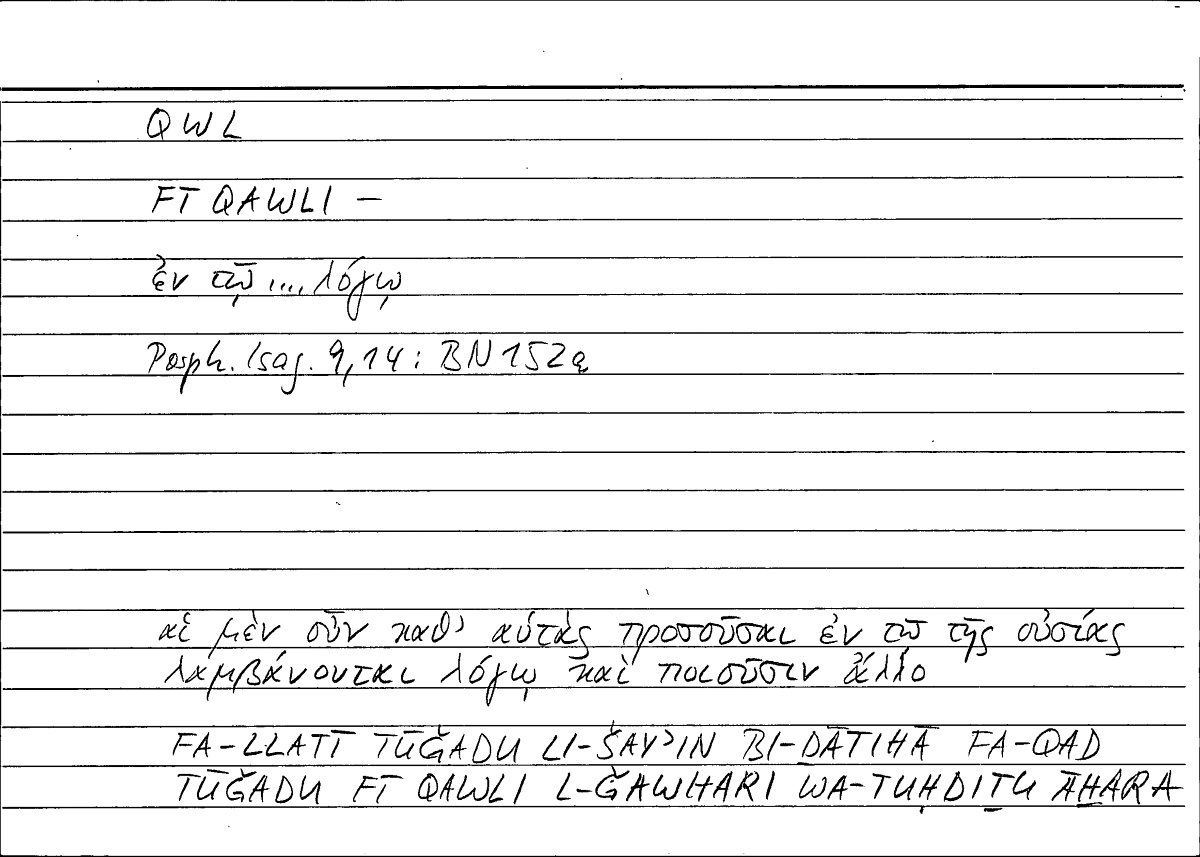 QWL
FĪ QAWLI –
ἐν τῷ .... λόγῳ
Porph. Isag. 9,14: BN 152a
αἱ μὲν οὖν καθ' αὑτὰς προσοῦσαι ἐν τῷ τῆς οὐσίας
λαμβάνονται λόγῳ καὶ ποιοῦσιν ἄλλο
FA-LLATĪ TŪǦADU LI-ŠAYʾIN BI-ḎĀTIHĀ FA-QAD
TŪǦADU FĪ QAWLI L-ǦAWHARI WA-TUḤDIṮU ĀḪARA